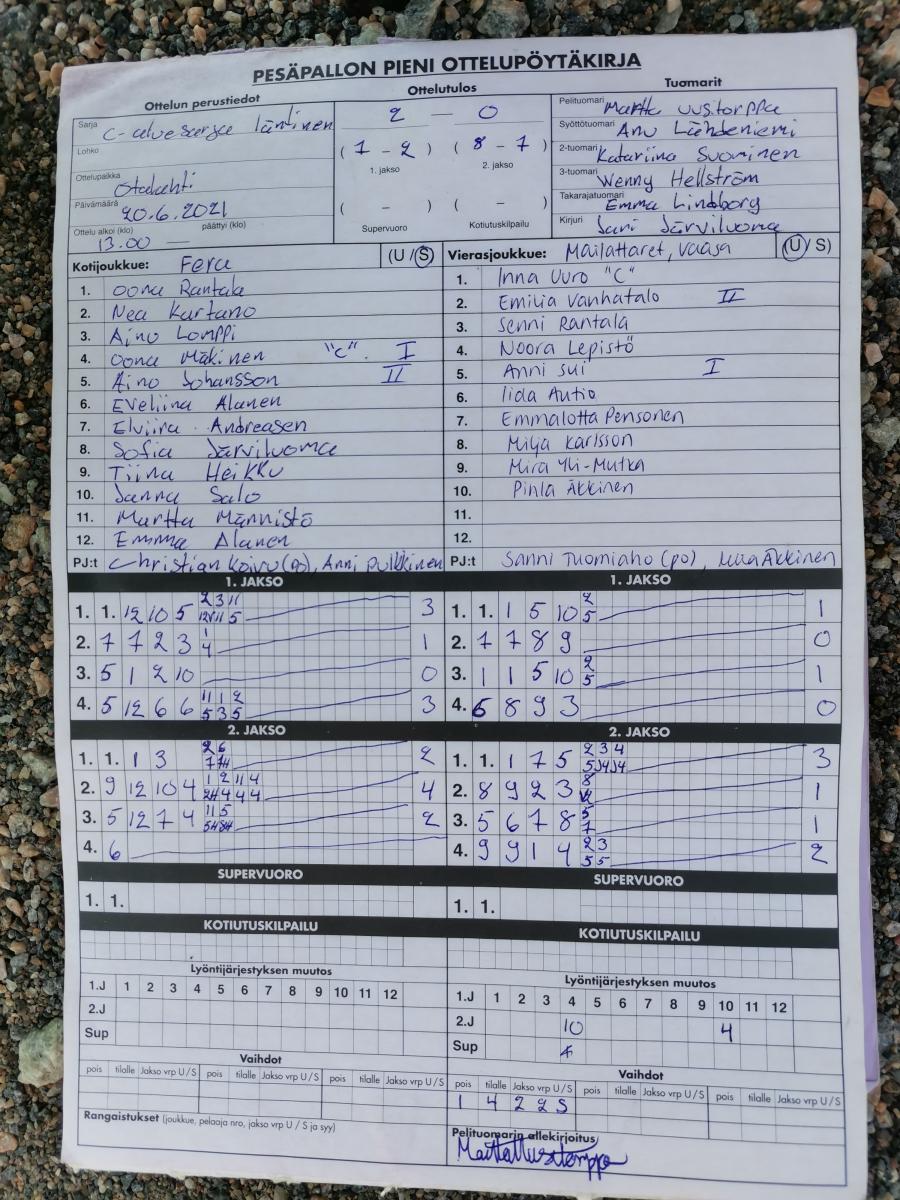 PESÄPALLON PIENI OTTELUPÖYTÄKIRJA
Ottelun perustiedot
Sarja C-aluesarja läntinen
Lohko
Ottelupaikka Otalahti
Päivämäärä 20.6.2021
Ottelu alkoi (klo) 13.00 — päättyi (klo)
Ottelutulos
2 — 0
( 7 - 2 ) ( 8 - 7 )
1. jakso 2. jakso
( - ) ( - )
Supervuoro Kotiutuskilpailu
Tuomarit
Pelituomari Martta Uusitorppa
Syöttötuomari Anu Lähdeniemi
2-tuomari Katariina Suominen
3-tuomari Wenny Hellström
Takarajatuomari Emma Lindborg
Kirjuri Sari Järviluoma
Kotijoukkue: Fera (U / S)
1. Oona Rantala
2. Nea Kurtano
3. Aino Lomppi
4. Oona Mäkinen "C". I
5. Aino Johansson II
6. Eveliina Alanen
7. Elviira Andreasen
8. Sofia Järviluoma
9. Tiina Heikku
10. Janna Salo
11. Martta Männistö
12. Emma Alanen
PJ:t Christian Koivu (po), Anni Pulkkinen
Vierasjoukkue: Mailattaret, Vaasa (U / S)
1. Inna Uuro "C"
2. Emilia Vanhatalo II
3. Senni Rantala
4. Noora Lepistö
5. Anni Sui I
6. Iida Autio
7. Emmalotta Pensonen
8. Milja Karlsson
9. Mira Yli-Mutka
10. Pinla Äkkinen
11.
12.
PJ:t Sanni Tuomiaho (po), Äkkinen
1. JAKSO
1. 1. 12 10 5 2 3 11 3
2. 7 7 2 3 1 4 1
3. 5 1 2 10 0
4. 5 12 6 6 11 1 2 5 3 5 3
2. JAKSO
1. 1. 1 3 2 6 2
2. 9 12 10 4 1 2 11 4 4
3. 5 12 7 4 11 5 2
4. 6
SUPERVUORO
1. 1.
KOTIUTUSKILPAILU
Lyöntijärjestyksen muutos
1.J 1 2 3 4 5 6 7 8 9 10 11 12
2.J
Sup
Vaihdot
pois tilalle Jakso vrp U/S pois tilalle Jakso vrp U/S pois tilalle Jakso vrp U/S
Rangaistukset (joukkue, pelaaja nro, jakso vrp U / S ja syy)
1. JAKSO
1. 1. 1 5 10 2 5 1
2. 7 7 8 9 0
3. 1 1 5 10 2 5 1
4. 6 8 9 3 0
2. JAKSO
1. 1. 1 7 5 2 3 4 3
2. 8 9 2 3 8 1
3. 5 6 7 8 5 7 1
4. 9 9 1 4 2 3 5 5 2
SUPERVUORO
1. 1.
KOTIUTUSKILPAILU
Lyöntijärjestyksen muutos
1.J 1 2 3 4 5 6 7 8 9 10 11 12
2.J 10 4
Sup
Vaihdot
pois tilalle Jakso vrp U/S pois tilalle Jakso vrp U/S pois tilalle Jakso vrp U/S
1 4 2 2 S
Pelituomarin allekirjoitus